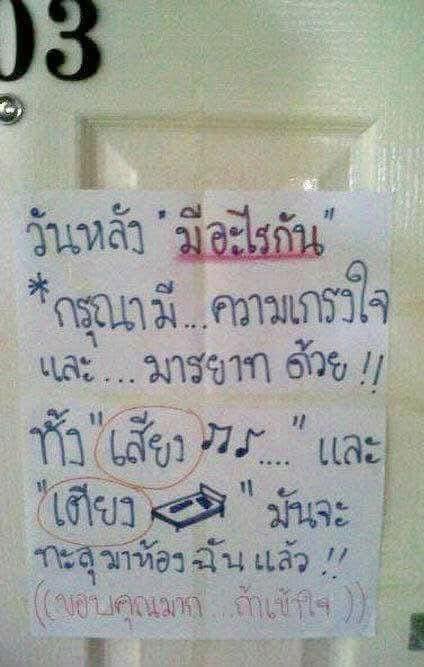 03
วันหลัง "มีอะไรกัน"
*กรุณามี... ความเกรงใจ
และ... มารยาท ด้วย !!
ทั้ง "เสียง ...." และ
"เตียง " มันจะ
ทะลุมาห้องฉันแล้ว !!
((ขอบคุณมาก...ถ้าเข้าใจ))